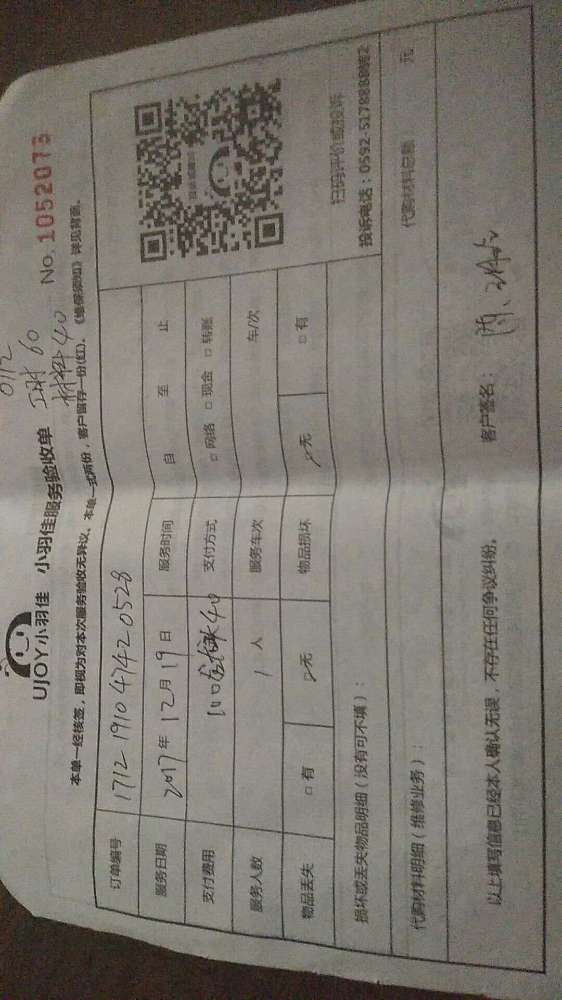 0112
工时 60
材料 40
UJOY小羽佳 小羽佳服务验收单 No. 1052073
本单一经核签，即视为对本次服务验收无异议。本单一式两份，客户留存一份(红)。《维保须知》详见背面。
订单编号 1712191047420528
服务日期 2017年12月19日 服务时间 自 至 止
支付费用 100 40 支付方式 □ 网络 □ 现金 □ 转账
服务人数 1 人 服务车次 车/次
物品丢失 □ 有 □无 物品损坏 □无 □ 有
扫码评价或投诉
投诉电话：0592-5178888转2
损坏或丢失物品明细（没有可不填）：
代购材料明细（维修业务）： 代购材料总额： 元
以上填写信息已经本人确认无误，不存在任何争议纠纷。 客户签名：